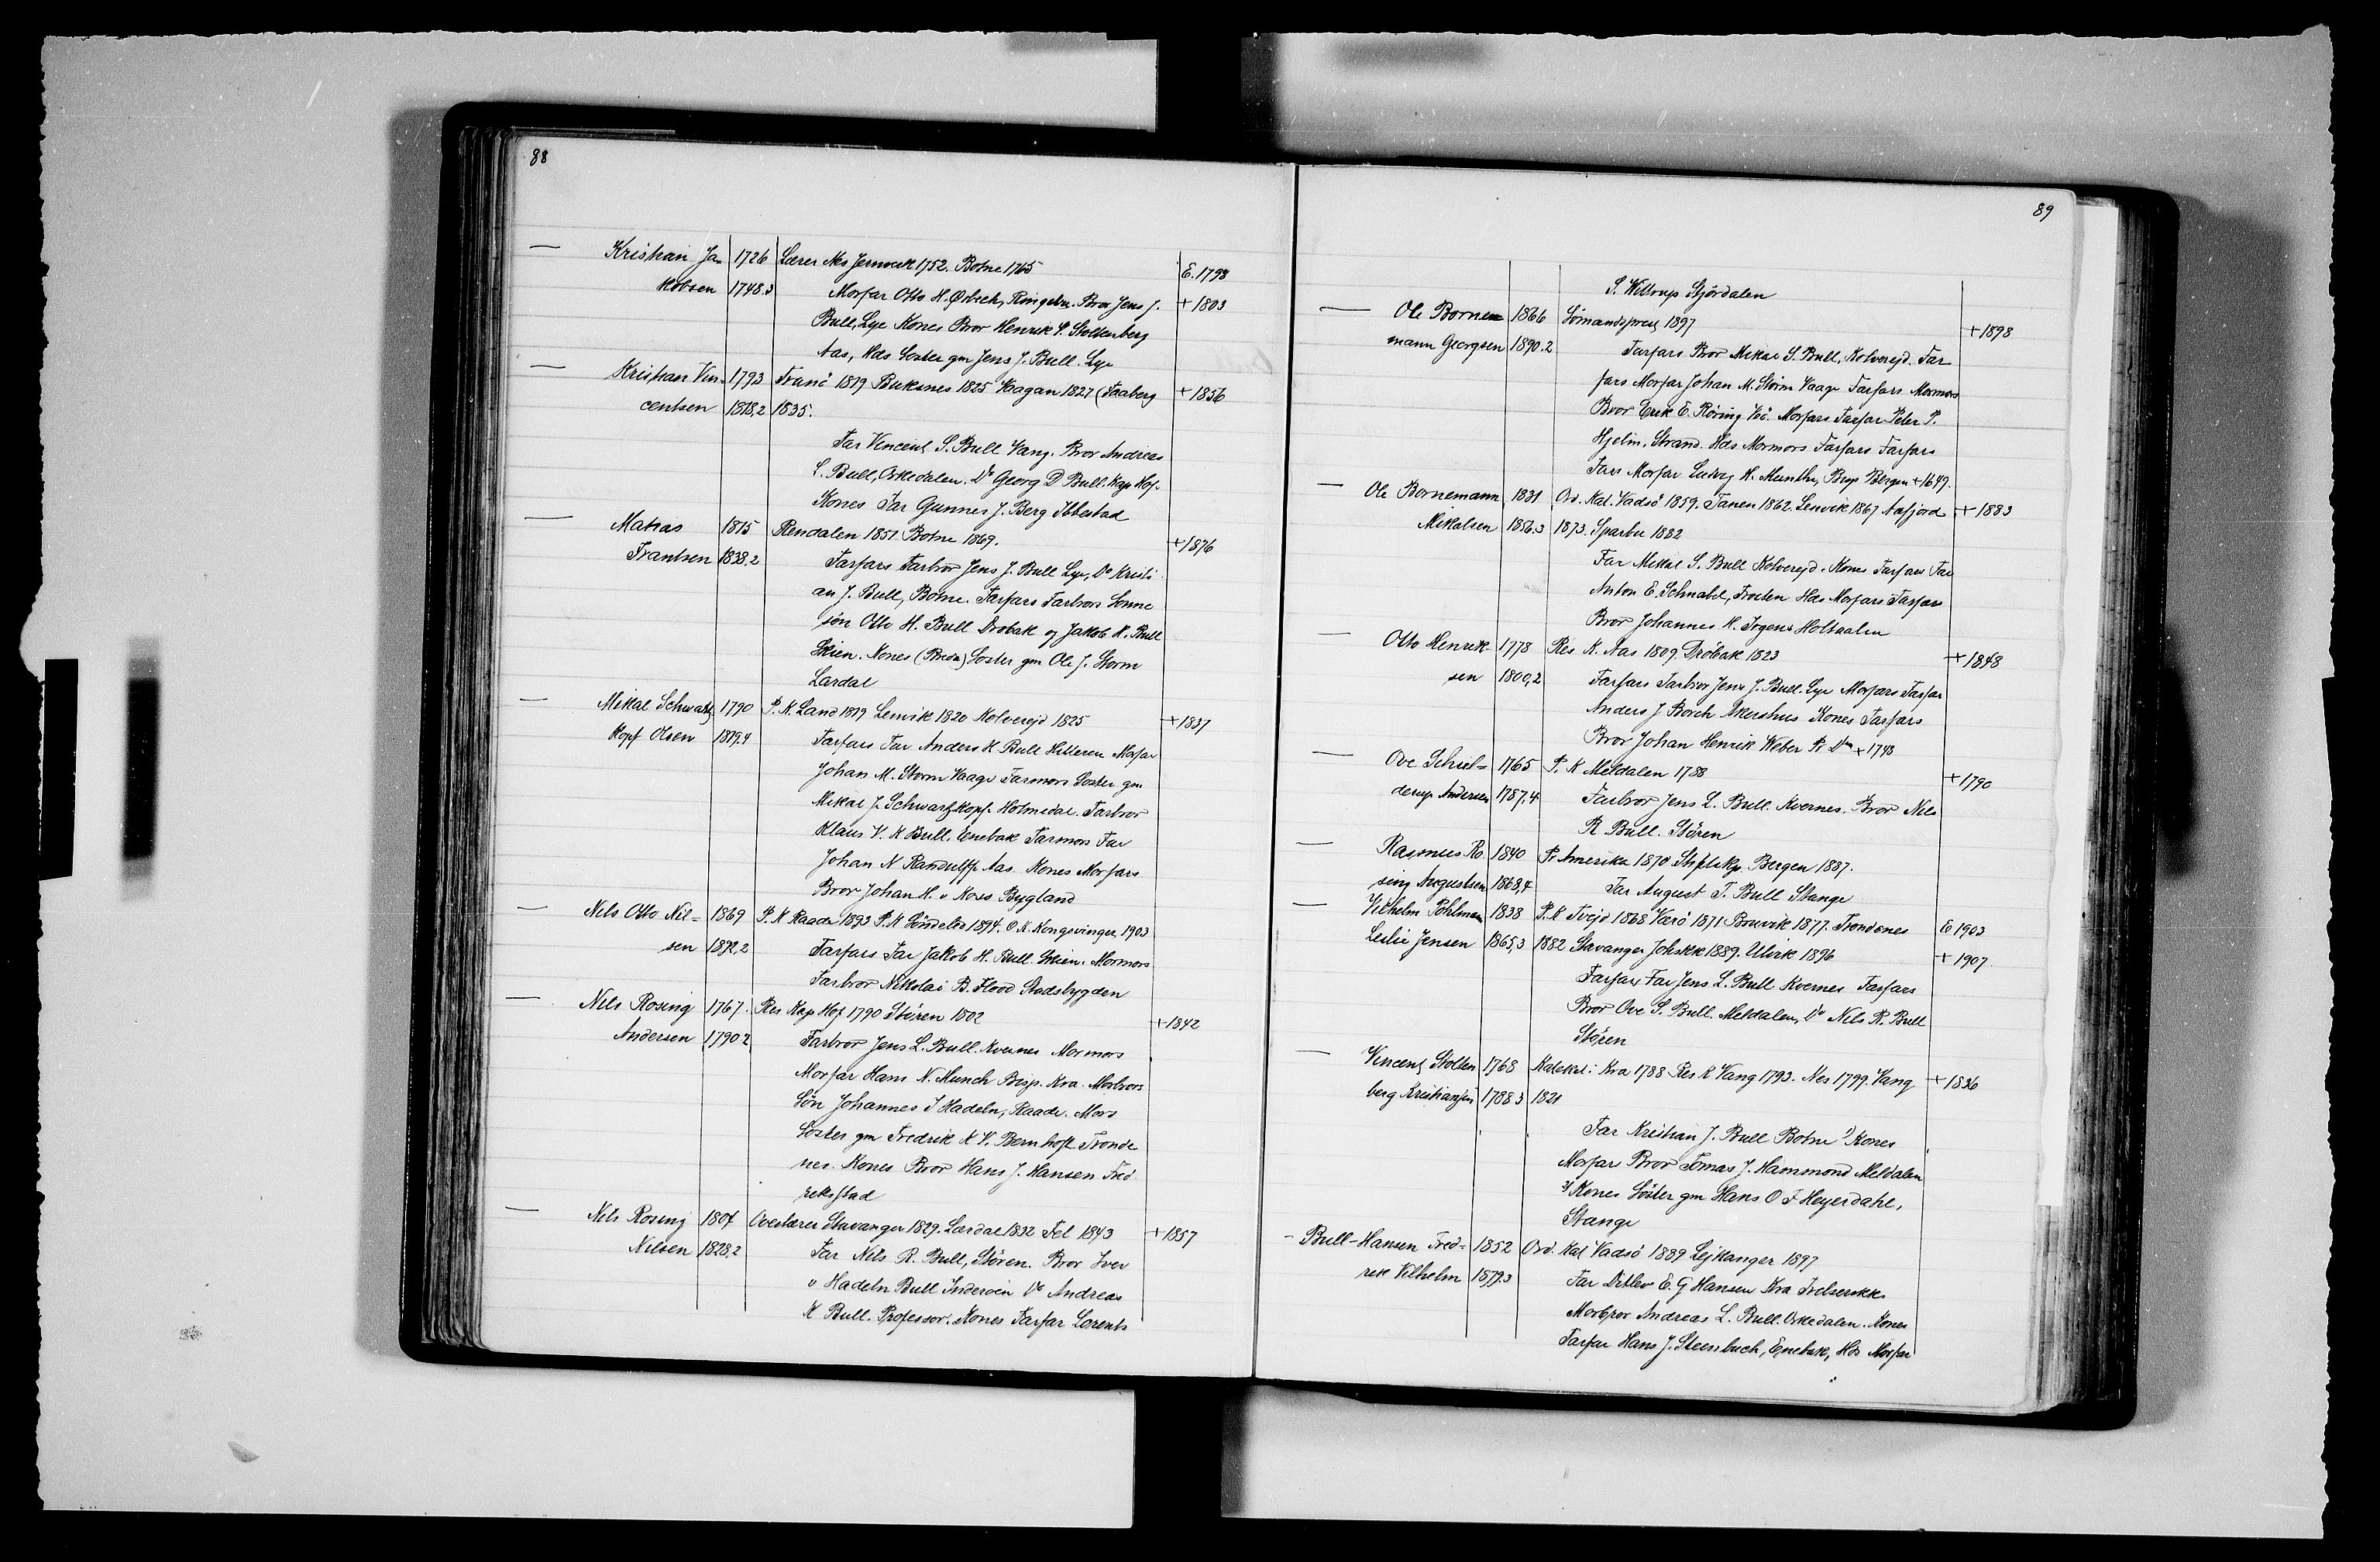 88
— Kristian Ja- 1726 Lærer Nes Jernverk 1752. Botne 1765 E. 1798
kobsen 1748.3 Morfar Otto H. Ørbech, Ringebu. Bror Jens J. + 1803
Bull, Lye Kones Bror Henrik S. Stoltenberg
Aas, Hds Søster gm Jens J. Bull. Lye
— Kristian Vin- 1793 Tranö 1819 Buksnes 1825 Vaagan 1827 (Faaberg + 1856
centsen 1818,2 1835.
Far Vincent S. Bull Vang. Bror Andreas
L. Bull, Orkedalen. Do Georg D Bull. Kap Hof.
Kones Far Gunner J. Berg Ibbestad
— Matias 1815 Rendalen 1851 Botne 1869. + 1876
Frantsen 1838.2 Farfars Farbror Jens J. Bull Lye, Do Kristi
an J. Bull, Botne. Farfars Farbrors Sønne
søn Otto H. Bull Drøbak og Jakob H. Bull
Skien. Kones (Breda) Søster gm Ole J. Storm
Lardal
— Mikal Schwartz 1790 P. K. Land 1819 Lenvik 1820 Kolverejd 1825 + 1837
kopf Olsen 1819.4 Farfars Far Anders K Bull Hitteren Morfar
Johan M. Storm Vaage Farmors Søster gm
Mikal J. Schwartzkopf. Holmedal. Farbror
Klaus V. K Bull. Enebak Farmors Far
Johan N Randulff. Aas. Kones Morfars
Bror Johan H. v Koss Bygland
— Nils Otto Nil- 1869 P. K Raade 1893 P. K Söndeled 1894. O. K. Kongsvinger 1903
sen 1892,2 Farfars Far Jakob H. Bull. Skien. Mormors
Farbror Nikolai B. Flood Stadsbygden
— Nils Rosing 1767. Res Kap Hof 1790 Stören 1802 + 1842
Andersen 1790.2 Farbror Jens L. Bull. Kvernes Mormors
Morfar Hans N. Munch Bisp. Kra. Morbrors
Søn Johannes I Hadeln, Raade. Mors
Søster gm Fredrik K V. Bernhoft Tronde
nes. Kones Bror Hans J. Hansen Fred
rekstad
— Nils Rosing 1804 Overlærer Stavanger 1829. Lardal 1832 Fet 1843 + 1857
Nilsen 1828.2 Far Nils R. Bull, Stören. Bror Iver
v Hadeln Bull Inderøen Do Andreas
K Bull. Professor. Kones Farfar Lorents
89
S. Wittrup Stjördalen
— Ole Borne- 1866 Sømandsprest 1897 + 1898
mann Georgsen 1890.2 Farfars Bror Mikal S. Bull, Kolverejd. Far
fars Morfar Johan M. Storm Vaage Farfars Mormors
Bror Erik E. Röring Vö. Morfars Farfar Peter P.
Hjelm, Strand. Hds Mormors Farfars Farfars
Fars Morfar Ludvig H. Munthe, Bisp Bergen + 1649.
— Ole Bornemann 1831 Ord. Kat. Vadsö 1859. Tanen 1862. Lenvik 1867 Aafjord + 1883
Mikalsen 1856.3 1873. Sparbu 1882
Far Mikal S. Bull Kolverejd. Kones Farfars Far
Anton E. Schnabel, Frosten Hds Morfars Farfars
Bror Johannes H. Irgens Holtaalen
— Otto Henrik- 1778 Res K. Aas 1809. Dröbak 1823 + 1848
sen 1800,2 Farfars Farbror Jens J. Bull. Lye Morfars Farfar
Anders J Borch Akershus Kones Farfars
Bror Johan Henrik Weber Pr Dm + 1748
— Ove Schiel- 1765 P. K Meldalen 1788 + 1790
derup Andersen 1787.4 Farbror Jens L. Bull. Kvernes. Bror Nils
R Bull. Stören
— Rasmus Ro 1840 Pr Amerika 1870 Stiftskp. Bergen 1887.
sing Augustsen 1868,4 Far August T. Bull Stange
— Vilhelm Pohlman 1838 P. K Tvejd 1868 Værö 1871 Bruvik 1877. Trondenes E 1903
Leslie Jensen 1865,3 1882 Stavanger Johskk 1889. Ulvik 1896 + 1907.
Farfars Far Jens L. Bull Kvernes Farfars
Bror Ove S. Bull. Meldalen, Do Nils R. Bull
Stören
— Vincent Stolten 1768 Katekel: Kra 1788 Res K Vang 1793. Nes 1799. Vang + 1836
berg Kristiansen 1788.3 1821
Far Kristian J. Bull Botne 1) Kones
Morfars Bror Tomas J. Hammond Meldalen
2) Kones Söster gm Hans O F Heyerdahl,
Stange
- Bull-Hansen Fred- 1852 Ord. Kat Vadsö 1889 Lejkanger 1897
rik Vilhelm 1879.3 Far Ditlev E. G Hansen Kra Frelserskk
Morbror Andreas L. Bull. Orkedalen. Kones
Farfar Hans J. Steenbuch, Enebak, Hds Morfar